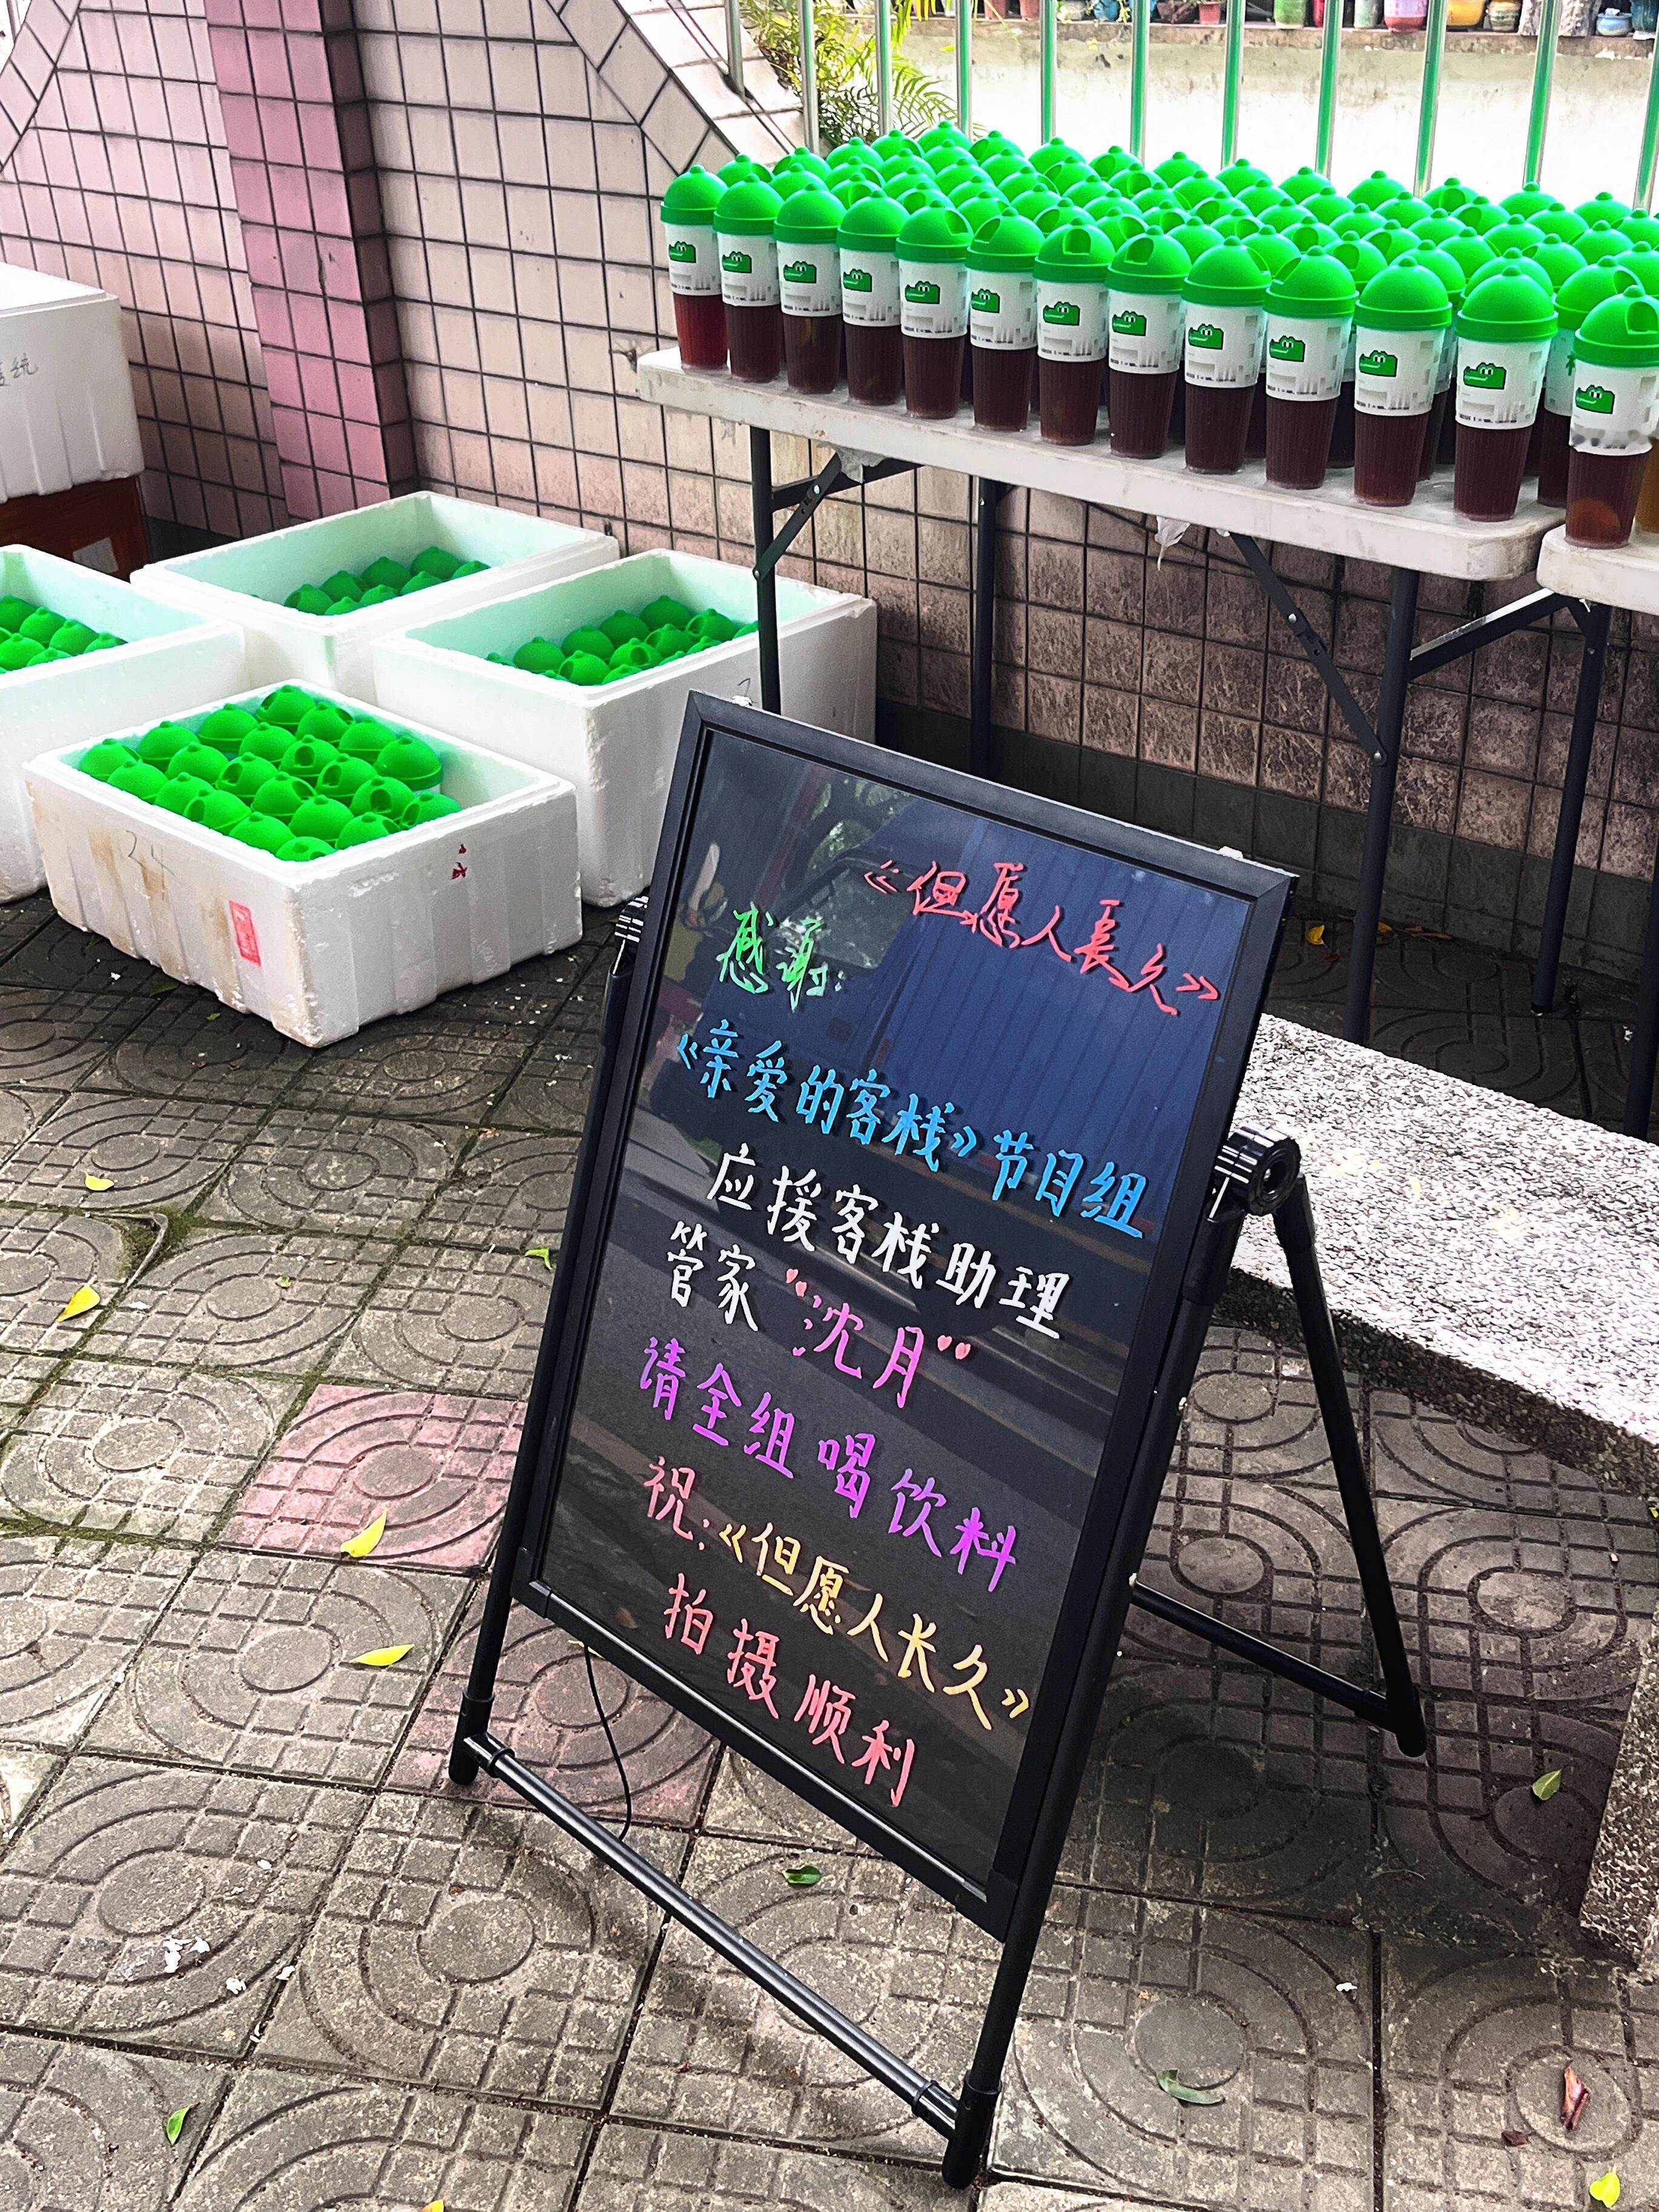 《但愿人長久》
感谢:
《亲爱的客栈》节目组
应援客栈助理
管家"沈月"
请全组喝饮料
祝:《但愿人长久》
拍摄顺利
24